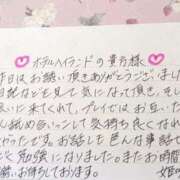 ホテルハイランドの貴方様
昨日はお誘い頂きありがとうございまし
日記などを見て気になって頂き、そし
い来てくれて、プレイではお互いた
ん舐め合いっこして気持ち良くなれ
やったです。お話しも色んな事話せ
く勉強になりました。またお時間が
お待ちしております。